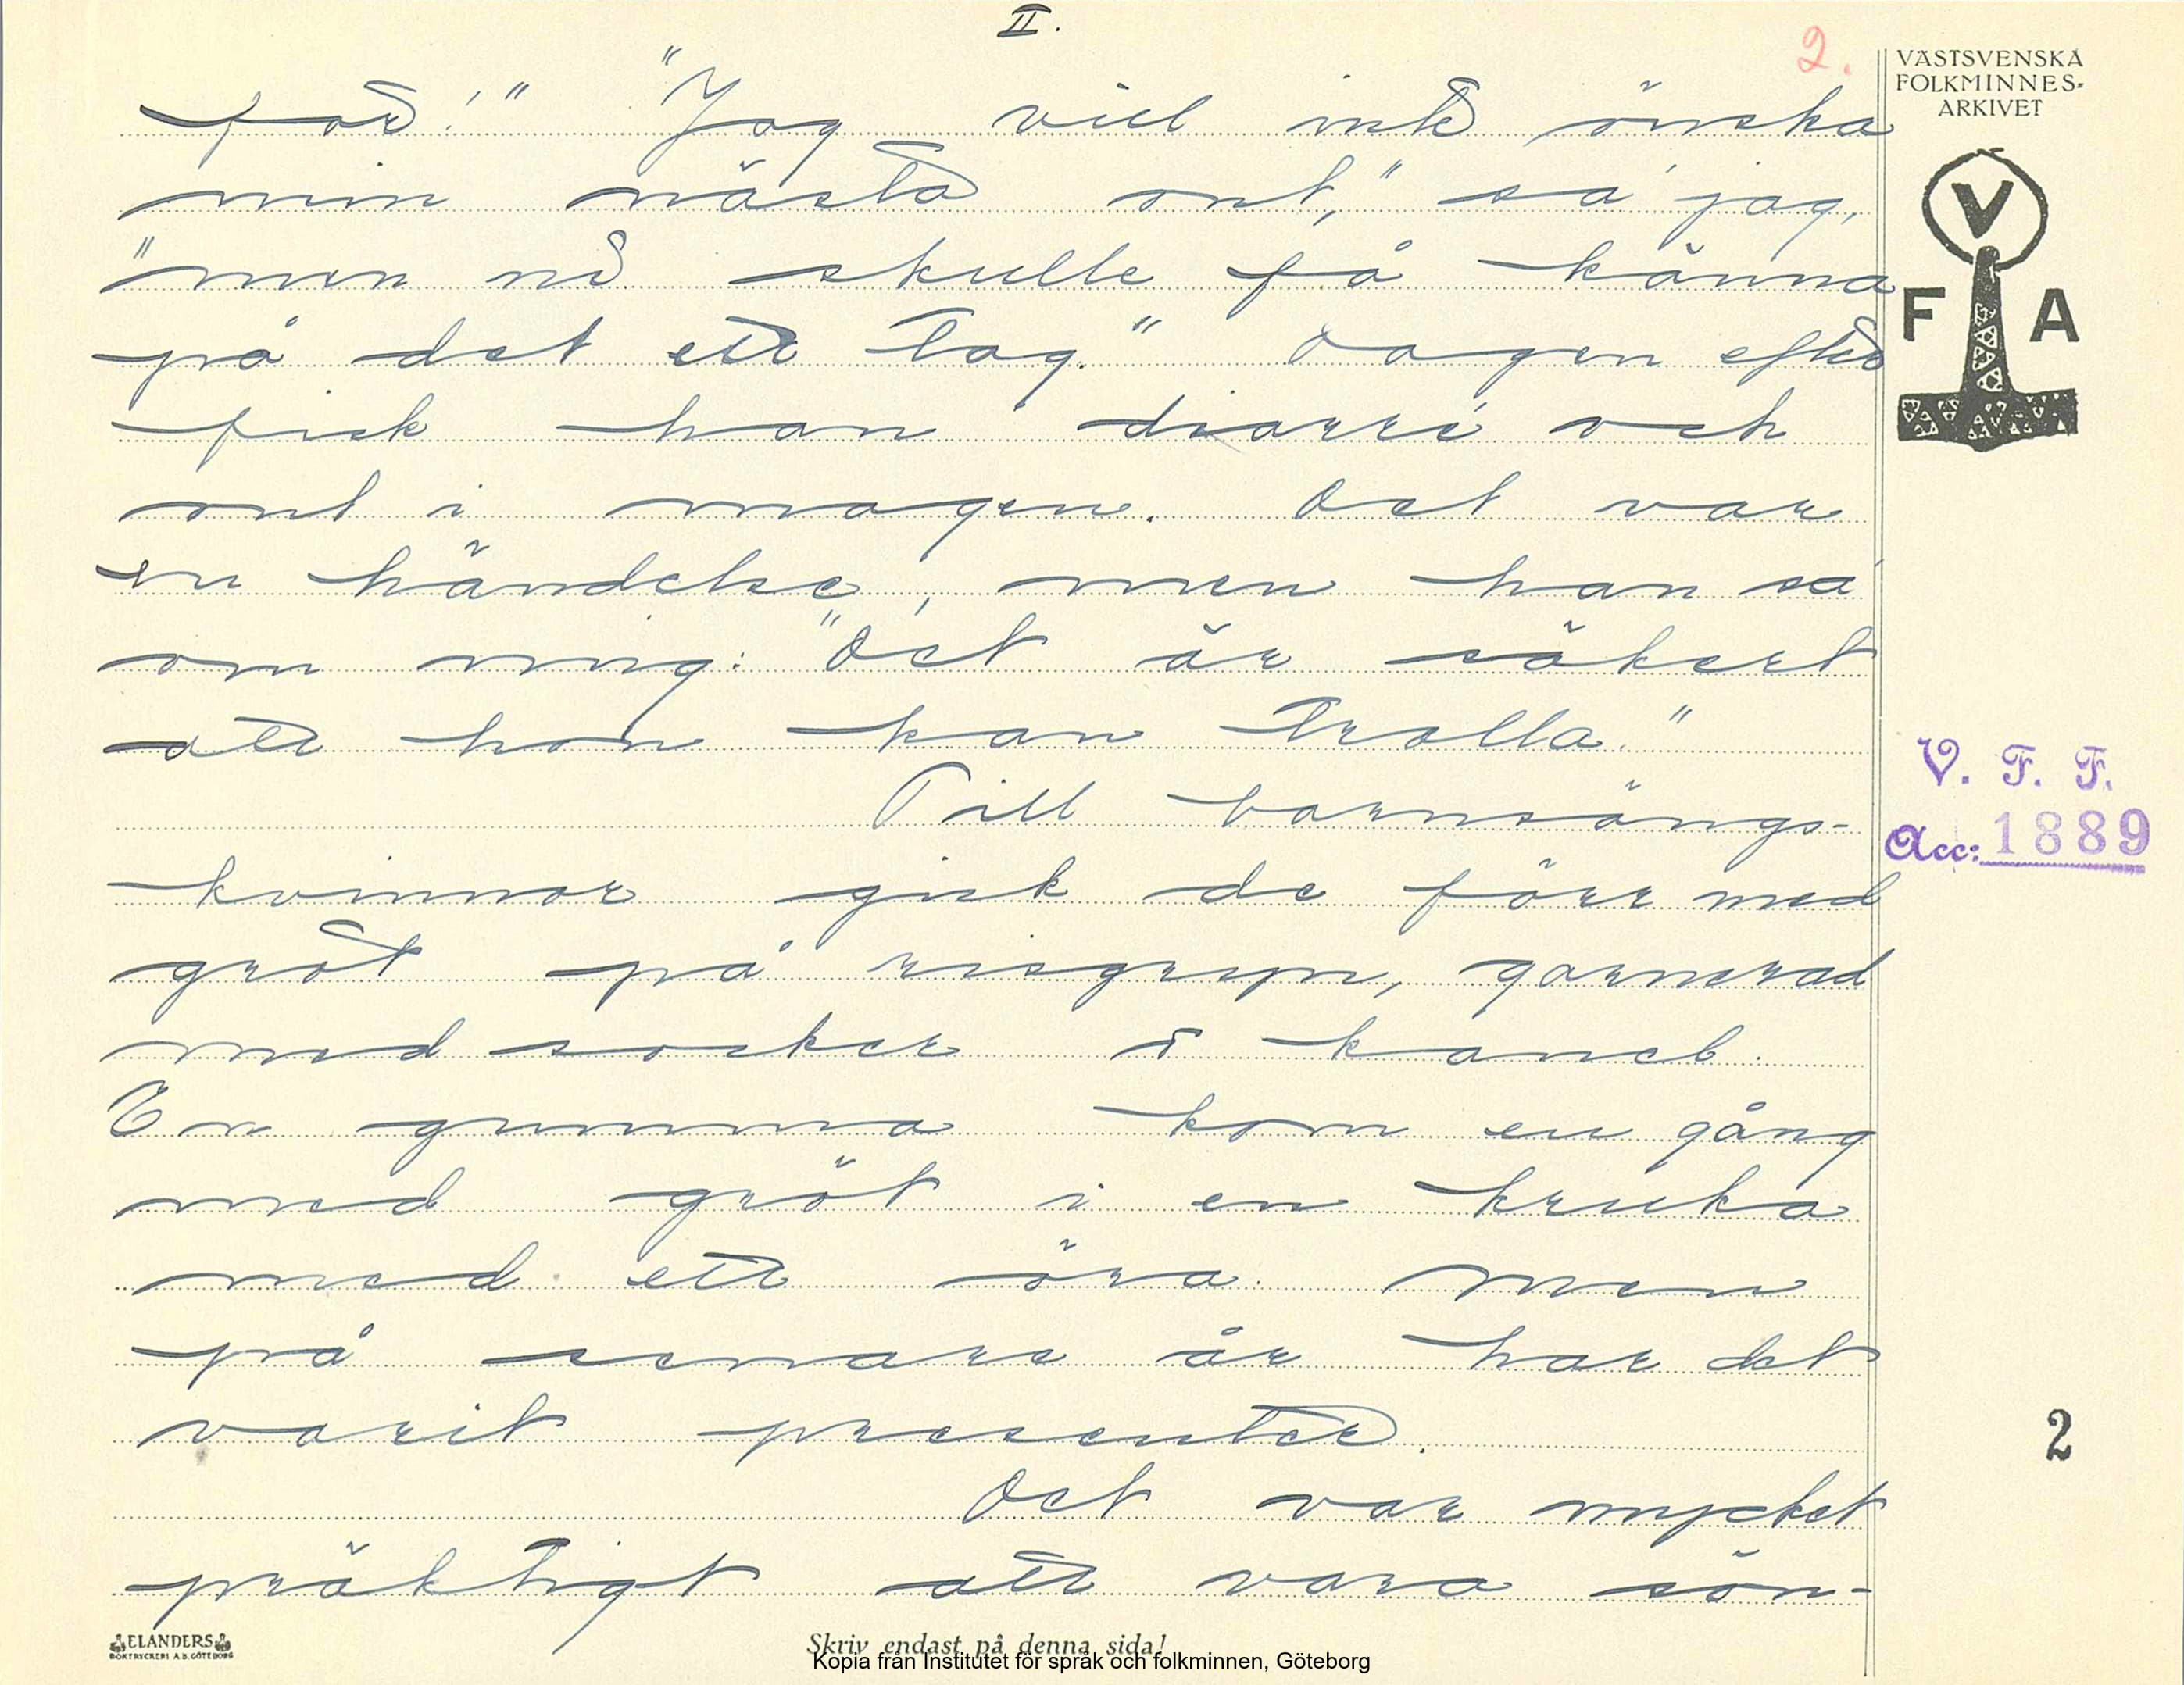 II.
2.
VÄSTSVENSKA
FOLKMINNES-
ARKIVET
V
F A
far!" "Jag vill inte önska
min nästa ont," sa' jag,
"men ni skulle få känna
på det ett tag." Dagen efter
fick han diarré och
ont i magen. Det var
en händelse, men han sa'
om mig: "Det är säkert
att hon kan trolla."
Till barnsängs-
kvinnor gick de förr med
gröt på risgryn, garnerad
med socker o kanel.
En gumma kom en gång
med gröt i en kruka
med ett öra. Men
på senare år har det
varit presenter.
Det var mycket
präktigt att vara sön-
V. F. F.
Acc: 1889
2
ELANDERS
BOKTRYCKERI A.B. GÖTEBORG
Skriv endast på denna sida!
Kopia från Institutet för språk och folkminnen, Göteborg